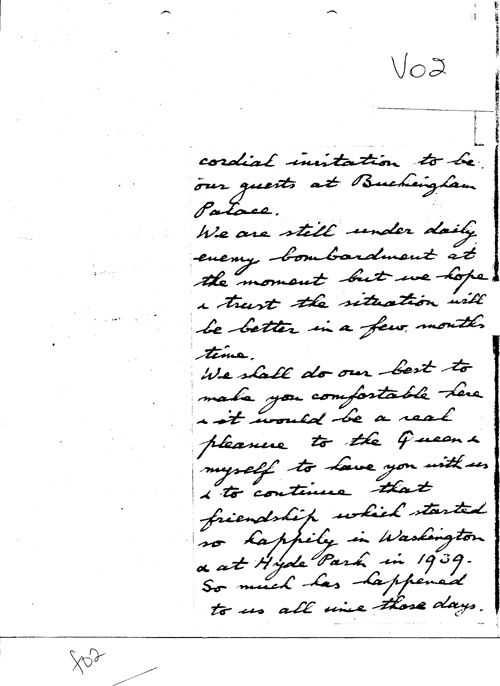 V02
cordial invitation to be
our guests at Buckingham
Palace.
We are still under daily
enemy bombardment at
the moment but we hope
& trust the situation will
be better in a few months
time.
We shall do our best to
make you comfortable here
& it would be a real
pleasure to the Queen &
myself to have you with us
& to continue that
friendship which started
so happily in Washington
& at Hyde Park in 1939.
So much has happened
to us all since those days.
f02